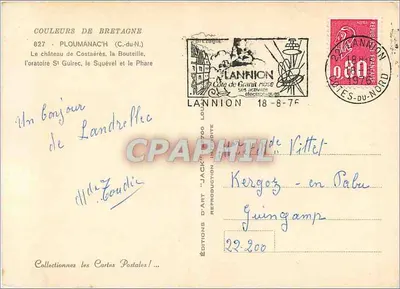 COULEURS DE BRETAGNE
627 - PLOUMANAC'H (C.-du-N.)
Le château de Costaérès, la Bouteille,
l'oratoire St Guirec, le Squével et le Phare
LANNION
Côte de Granit Rose
LANNION 18-8-76
22 LANNION
18-8
1976
CÔTES-DU-NORD
0,80
CPARAMA
Un bonjour
de Landrellec
de Vittet
Kergoz - en Pabu
Guingamp
22-200
EDITIONS D'ART "JACK"
Collectionnez les Cartes Postales !...